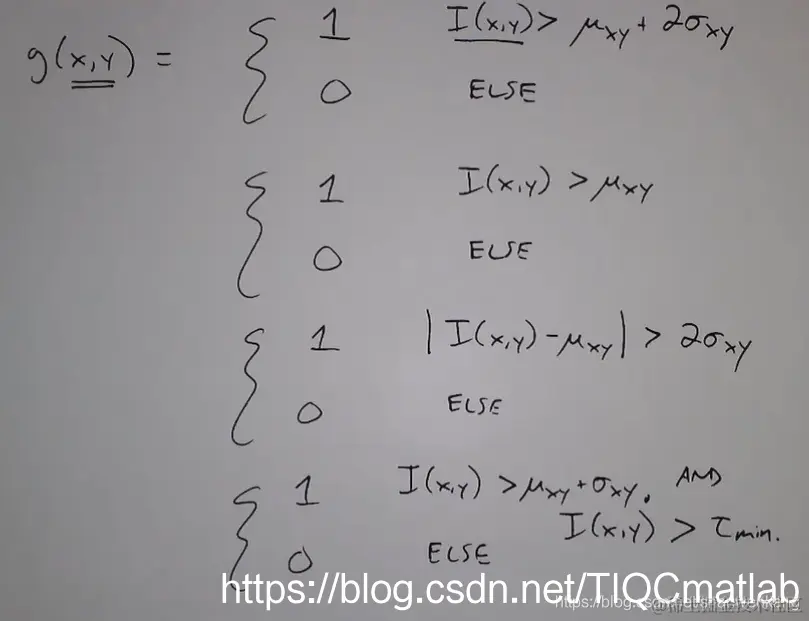 g(x,y) = { 1 I(x,y) > μxy + 2σxy
0 ELSE
{ 1 I(x,y) > μxy
0 ELSE
{ 1 |I(x,y) - μxy| > 2σxy
0 ELSE
{ 1 I(x,y) > μxy + σxy. AND
I(x,y) > τmin.
0 ELSE
https://blog.csdn.net/TIQCmatlab